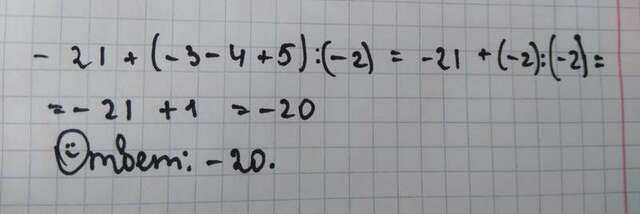 - 21 + (-3 - 4 + 5) : (-2) = -21 + (-2) : (-2) =
= - 21 + 1 = -20
Ответ: - 20.